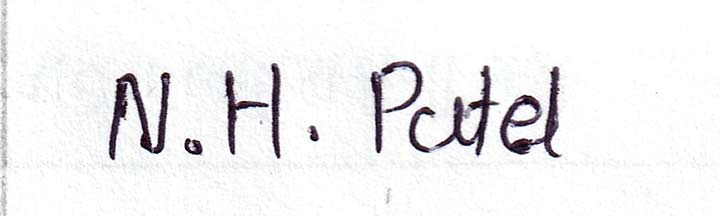 N.H. Patel